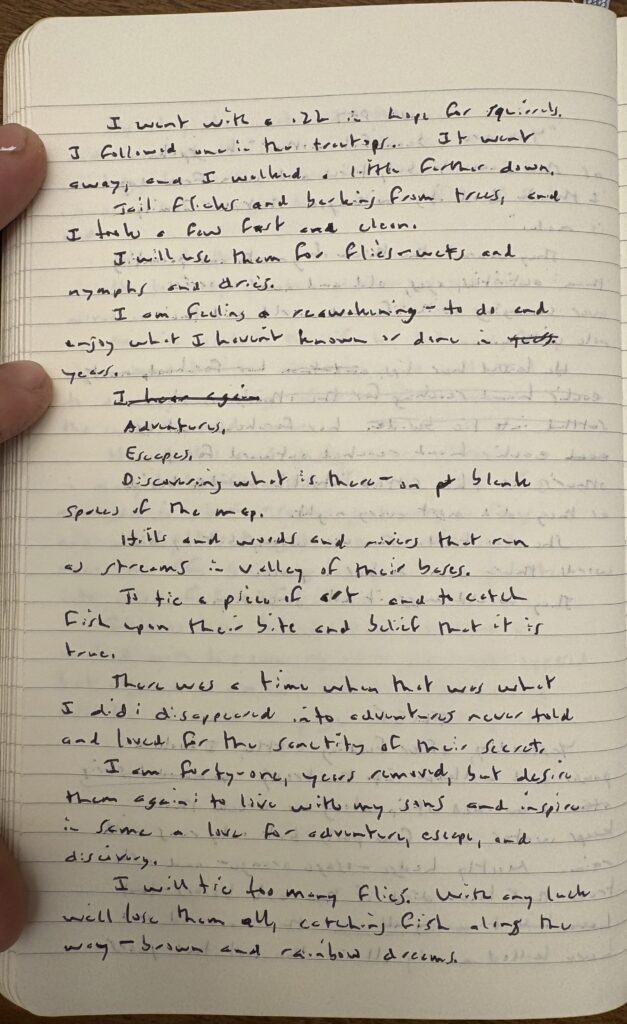 I went with a .22 in hope for squirrels.
I followed one in the treetops. It went
away, and I walked a little further down.
Tail flicks and barking from trees, and
I took a few fast and clean.
I will use them for flies - wets and
nymphs and dries.
I am feeling a reawakening - to do and
enjoy what I haven't known or done in years.
years.
I hear again
Adventures.
Escapes.
Discovering what is there - on blank
spaces of the map.
Hills and woods and rivers that run
as streams in valley of their bases.
To tie a piece of art and to catch
fish upon their bite and belief that it is
true.
There was a time when that was what
I did; disappeared into adventures never told
and loved for the sanctity of their secrets.
I am forty-one, years removed, but desire
them again: to live with my sons and inspire
in same a love for adventure, escape, and
discovery.
I will tie too many flies. With any luck
we'll lose them all, catching fish along the
way - brown and rainbow dreams.